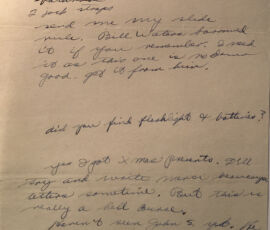 2 jock straps
send me my slide
rule. Bill Waters borrowed
it if you remember. I need
it as this one is no damn
good. get it from him.
did you find flashlight & batteries?
yes I got X mas presents. I'll
try and write more
letters sometime. But this is
really a hell
Haven't seen John S yet. We